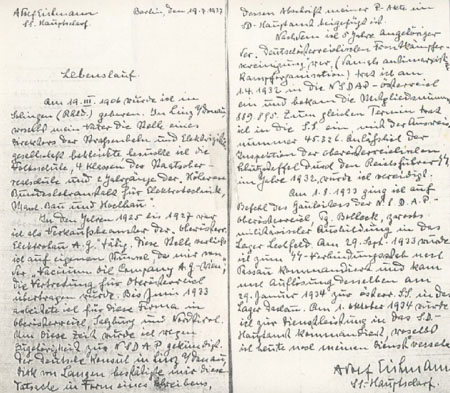 Adolf Eichmann
SS. Hauptscharf.
Berlin, den 19.7.1937
Lebenslauf
Am 19. III. 1906 wurde ich in
Solingen (Rhld.) geboren. In Linz a/Donau
woselbst mein Vater die Stelle eines
Direktors der Strassenbahn und Elektrizitäts
gesellschaft bekleidete besuchte ich die
Volksschule, 4 Klassen der Staatsober
realschule und 2 Jahrgänge der Höheren
Bundeslehranstalt für Elektrotechnik,
Masch. Bau und Hochbau.
In den Jahren 1925 bis 1927 war
ich als Verkaufsbeamter der oberösterr.
Elektrobau A.G. tätig. Diese Stelle verliess
ich auf eigenen Wunsch da mir von
der Vacuum Oil Company A.G.-Wien,
die Vertretung für Oberösterreich
übertragen wurde. Bis Juni 1933
arbeitete ich für diese Firma in
Oberösterreich, Salzburg und Nordtirol.
Um diese Zeit wurde ich wegen
Zugehörigkeit zur N.S.D.A.P. gekündigt.
Der deutsche Konsul in Linz a/Donau,
Dirk von Langen bestätigte mir diese
Tatsache in Form eines Schreibens,
dessen Abschrift meiner P-Akte im
SD-Hauptamt beigefügt ist.
Nachdem ich 5 Jahre Angehöriger
der Deutschösterreichischen Frontkämpfer-
vereinigung, war, (damals antimarxistische
Kampforganisation) trat ich am
1.4.1932 in die N.S.D.A.P.-Österreich
ein und bekam die Mitgliedsnummer
889 895. Zum gleichen Termin trat
ich in die S.S. ein, mit der Ausweis,
nummer 45.326. Anlässlich der
Inspektion der oberösterreichischen
Schutzstaffel durch den Reichsführer SS
im Jahre 1932, wurde ich vereidigt.
Am 1.8.1933 ging ich auf
Befehl des Gauleiters der N.S.D.A.P.-
Oberösterreich, Pg. Bolleck, zwecks
militärischer Ausbildung in das
Lager Lechfeld. Am 29. Sept. 1933 wurde
ich zum SS-Verbindungsstab nach
Passau kommandiert und kam
nach Auflösung desselben am
29. Jänner 1934 zur österr. SS. in das
Lager Dachau. Am 1. Oktober 1934 wurde
ich zur Dienstleistung in das SD.-
Hauptamt kommandiert, woselbst
ich heute noch meinen Dienst versehe.
Adolf Eichmann
SS.-Hauptscharf.